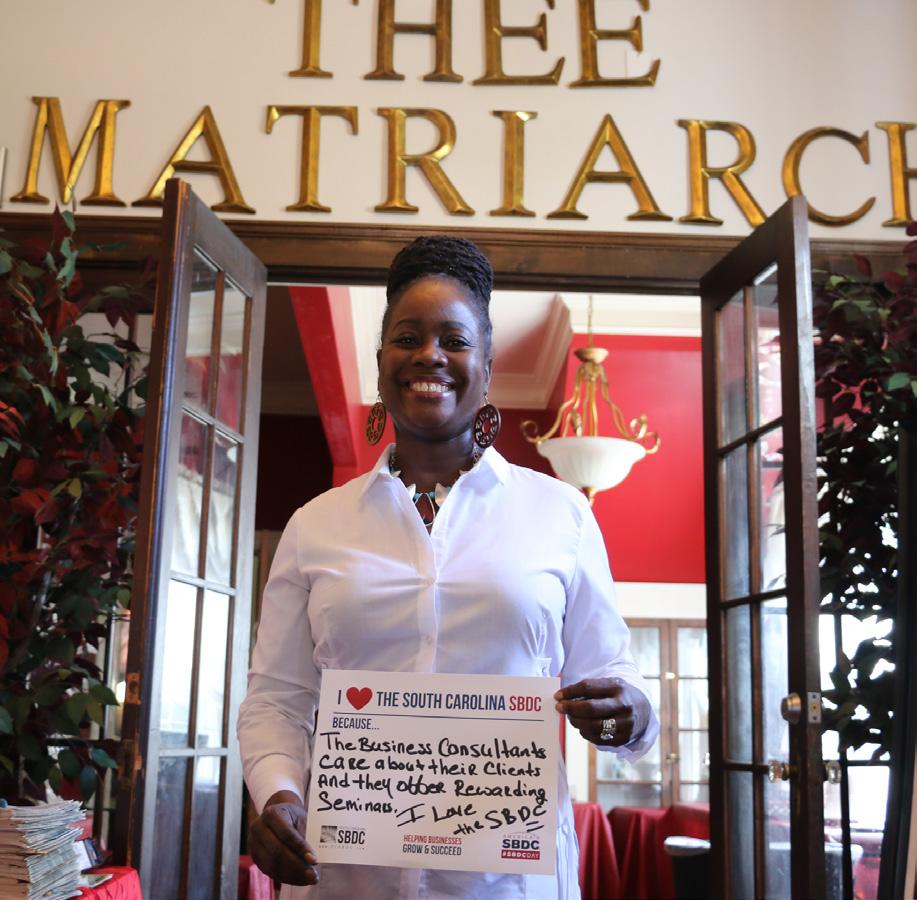 THEE
MATRIARCH
I ❤ THE SOUTH CAROLINA SBDC
BECAUSE...
The Business Consultants
Care about their Clients
And they offer Rewarding
Seminars. I Love
the SBDC
SBDC
HELPING BUSINESSES
GROW & SUCCEED
AMERICA'S
SBDC
#SBDCDAY